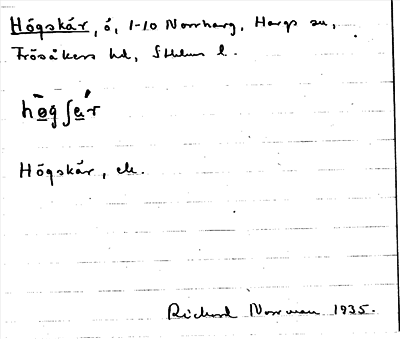 Högskär, ö, 1-10 Norrharg, Hargs sn,
Frösåkers hd, Sthlms l.
hø̄gʃá̱r
Högskär, ek.
Richard Norrman 1935.